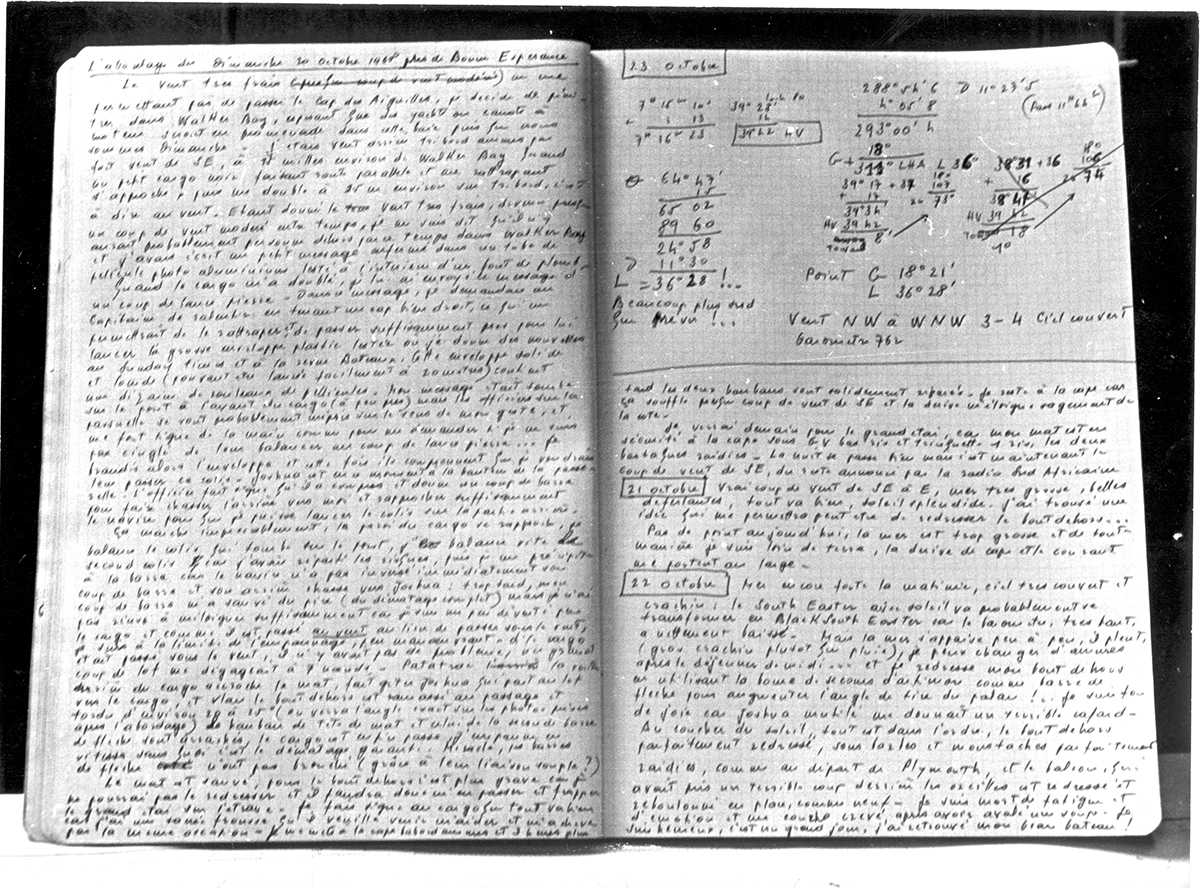 L'abordage du Dimanche 20 octobre 1968 près de Bonne Espérance
Le vent très frais (presque coup de vent modéré) ne me
permettant pas de passer le Cap des Aiguilles, je décide de
dans Walker Bay, espérant que des yachts ou canots à
moteur seront en promenade dans cette baie puisque nous
sommes Dimanche - J'étais vent arrière tribord amures par
fort vent de SE, à milles environ de Walker Bay quand
un petit cargo noir faisant route parallèle et me rattrapant
s'approche, puis me double à 25 m environ sur tribord, c'est
à dire au vent. Etant donné le vent très frais, devenu presque
un coup de vent modéré entre temps, je me suis dit qu'il n'y
aurait probablement personne dehors par ce temps dans Walker Bay
et j'avais écrit un petit message enfermé dans un tube de
pellicule photo aluminium lesté à l'intérieur d'un bout de plomb -
Quand le cargo m'a doublé, je lui ai envoyé le message d'
un coup de lance pierre - Dans ce message, je demandais au
Capitaine de ralentir en tenant un cap bien droit, ce qui me
permettrait de le rattraper et de passer suffisamment près pour lui
lancer la grosse enveloppe plastic lestée où je donne des nouvelles
au Sunday Times et à la revue Bateaux. Cette enveloppe solide
et lourde (pouvant être lancée facilement à 20 mètres) contient
une dizaine de rouleaux de pellicules. Mon message était tombé
sur le pont à l'avant du cargo (à peu près) mais les officiers sur la
passerelle se sont probablement mépris sur le sens de mon geste, et
me font signe de la main comme pour me demander si je ne suis
pas cinglé de leur balancer un coup de lance pierre... Je
brandis alors l'enveloppe et cette fois ils comprennent que je voudrais
leur passer ce colis - Joshua est en ce moment à la hauteur de la passe-
relle. L'officier fait signe qu'il a compris et donne un coup de barre
pour faire chasser l'arrière vers moi et rapprocher suffisamment
le navire pour que je puisse lancer le colis sur la partie arrière.
Ça marche impeccablement, la paroi du cargo se rapproche, je
balance le colis qui tombe sur le pont, j'en balance vite
second colis (car j'avais réparti les risques), puis je me précipite
à la barre car le navire n'a pas inversé immédiatement son
coup de barre et son arrière chasse vers Joshua : trop tard, mon
coup de barre m'a sauvé du pire (du démâtage complet) mais je n'ai
pas réussi à m'éloigner suffisamment car je suis un peu déventé par
le cargo et comme il est passé au vent au lieu de passer sous le vent,
je suis à la limite de l'empannage, en manœuvrant - Si le cargo
était passé sous le vent, il n'y avait pas de problème, un grand
coup de lof me dégageant à 7 nœuds. - Patatrac la voûte
arrière du cargo accroche le mât, fait gîter Joshua qui part au lof
vers le cargo, et vlan le bout dehors est ramassé au passage et
tordu d'environ 20 à 25° (on verra l'angle exact sur les photos prises
après abordage) le hauban de tête de mât et celui de la seconde barre
de flèche sont arrachés, le cargo est enfin passé, j'empanne en
vitesse sans quoi c'est le démâtage garanti. Miracle, les barres
de flèche n'ont pas bronché (grâce à leur liaison souple ?)
Le mât est sauvé, pour le bout dehors c'est plus grave car je
ne pourrai pas le redresser et il faudra donc m'en passer et frapper
le grand étai sur l'étrave - Je fais signe au cargo que tout va bien
car j'ai une sainte frousse qu'il veuille venir m'aider et m'achève
par la même occasion - Je me mets à la cape bâbord amures et 2 heures plus
23 Octobre
7° 15m 10s
+ 1 13
7° 16m 23
39° 28'
14
39 42 HV
64° 47'
15
65 02
89 60
24° 58
D 11° 30
L = 36° 28' !...
Beaucoup plus sud
que prévu !...
288° 54' 6 D 11° 23' 5
4° 05' 8
293° 00' 4
G + 18°
311° LHA L 36°
39° 17 + 37
17
39° 34
HV 39 42
8'
180
107
73°
3831 + 36
+ 16
3847
HV 39 42
180
106
74
Point G 18° 21'
L 36° 28'
Vent NW à WNW 3 - 4 Ciel couvert
baromètre 762
tard les deux haubans sont solidement réparés - Je reste à la cape car
ça souffle presque coup de vent de SE et la dérive m'éloigne sagement de
la côte -
Je verrai demain pour le grand étai, car mon mât est en
sécurité à la cape sous GV bas ris et trinquette 1 ris, les deux
bastaques raidies - La nuit se passe très bien, c'est maintenant le
coup de vent de SE, du reste annoncé par la radio Sud Africaine
21 Octobre Vrai coup de vent de SE à E, mer très grosse, belles
déferlantes, tout va bien, soleil splendide - J'ai trouvé une
idée qui me permettra peut être de redresser le bout dehors....
Pas de point aujourd'hui, la mer est trop grosse et de toute
manière je suis loin de terre, la dérive de cape et le courant
me portent au large -
22 Octobre Mer encore forte la matinée, ciel très couvert et
crachin : le South Easter avec soleil va probablement se
transformer en Black South Easter car le baromètre, très haut,
a nettement baissé - Mais la mer s'apaise peu à peu, il pleut,
(gros crachin plutôt que pluie), je peux changer d'amures
après le déjeuner de midi ... et je redresse mon bout dehors
en utilisant la bôme de secours d'artimon comme barre de
flèche pour augmenter l'angle de tire du palan !... Je suis fou
de joie car Joshua mutilé me donnait un terrible cafard -
Au coucher du soleil, tout est dans l'ordre, le bout dehors
parfaitement redressé, sous barbes et moustaches parfaitement
raidies, comme au départ de Plymouth, et le balcon, qui
avait pris un terrible coup derrière les oreilles est redressé et
reboulonné en place, comme neuf - Je suis mort de fatigue et
d'émotion et me couche crevé après avoir avalé une soupe. Je
suis heureux, c'est un grand jour, j'ai retrouvé mon beau bateau !